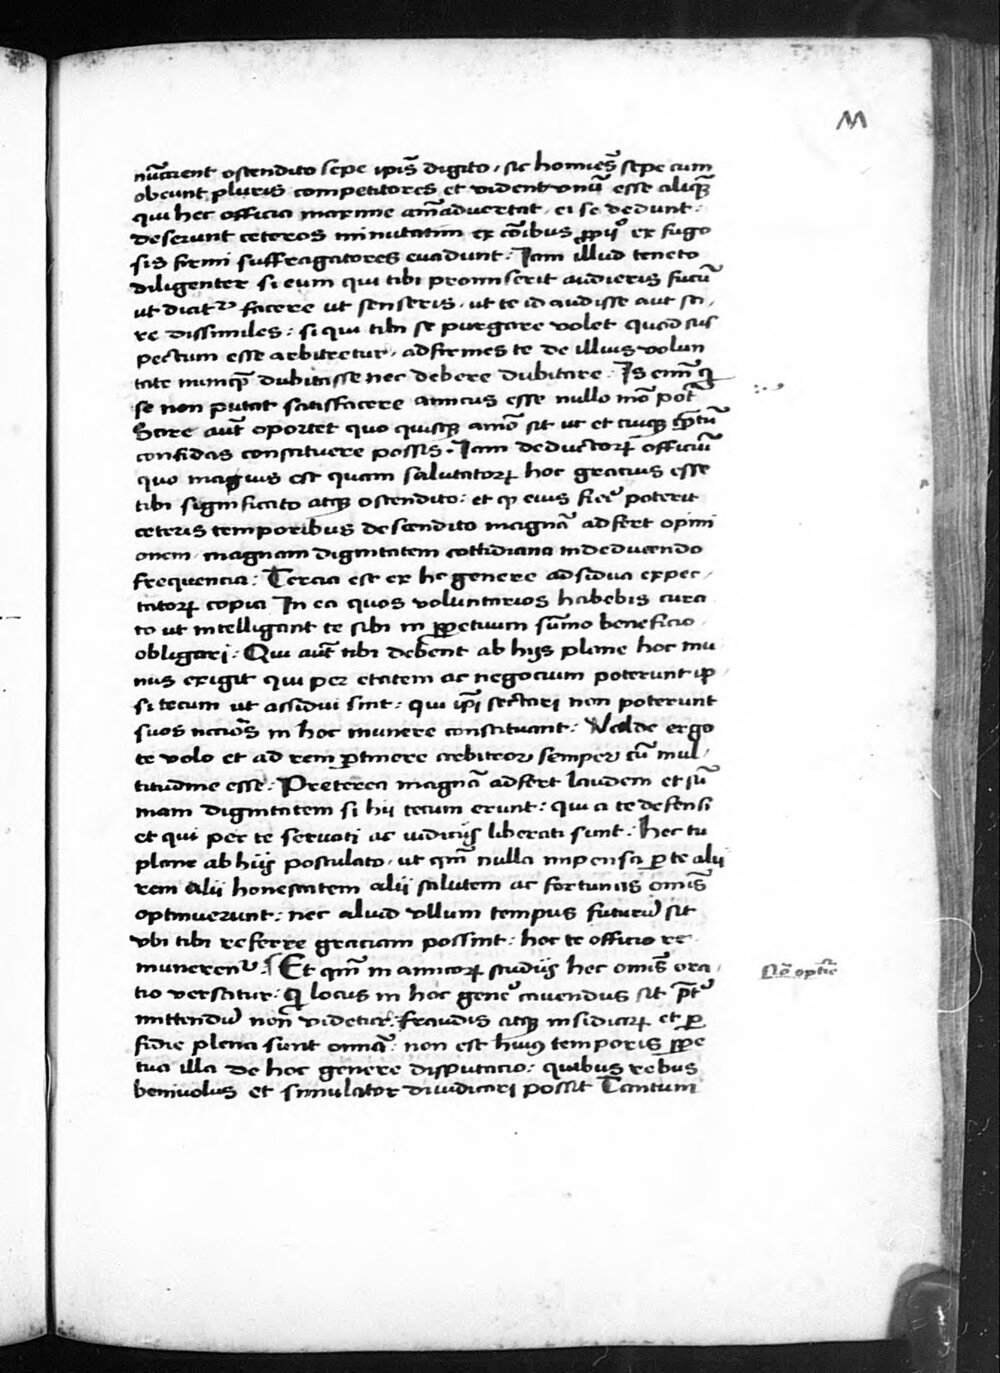 M
nūtient ostendito sepe ipīs digito, sic homiēs sepe cum
obeunt pluris competitores et vident vnū esse aliq̄
qui hec officia maxime am̄advertat, ei se dedunt:
deserunt ceteros minutatim ex cōibus ꝓpii ex fugo
sis firmi suffragatores evadunt: Iam illud teneto
diligenter si eum qui tibi promiserit audieris fucū
ut dicit᷑ facere ut senseris, ut te id audisse aut sci,
re dissimiles: si qui tibi se purgare volet quod sus
pectum esse arbitretur, adfirmes te de illius volun
tate nunqȝ dubitasse nec debere dubitare. Is enī q̄
se non putat satisfacere amicus esse nullo mō pōt
Scire aūt oportet quo quisqȝ amō sit ut et cuiqȝ q̄ntū
confidas constituere possis. Iam deductorꝝ officiū
quo magius est quam salutatorꝝ hoc gracius esse
tibi significato atqȝ ostendito: et ꝙ eius fieri poterit
ceteris temporibus descendito magnā adfert opini
onem, magnam dignitatem cottidiana in deducendo
frequencia: Tercia est ex hc genere adsidua expec,
tatorꝝ copia In ea quos voluntarios habebis cura
to ut intelligant te sibi in ꝑpetuum sūmo beneficio
obligari: Qui aūt tibi debent ab hijs plane hoc mu
nus exigit qui per etatem ac negocium poterunt ip
si tecum ut assidui sint: qui ipī sectari non poterunt
suos necīos in hoc munere constituant: Valde ergo
te volo et ad rem ꝑtinere arbitror semper cū mul,
titudine esse: Preterea magnā adfert laudem et sū
mam dignitatem si hij tecum erunt: qui a te defensi
et qui per te servati ac iudicijs liberati sunt: hec tu
plane ab hijs postulato, ut qm̄ nulla impensa ꝑ te alij
rem alij honestatem alij salutem ac fortunas omīs
optinuerunt: nec aliud vllum tempus futurū sit
vbi tibi referre graciam possint: hoc te officio re
munerent᷑: Et qm̄ in amicorꝝ studijs hec omīs ora,
tio versatur: q̄ locus in hoc geñe cavendus sit p̄t
mittendū non videtur: fraudis atqȝ insidiarꝝ et ꝑ
fidie plena sunt omnia: non est huiꝯ temporis ꝑpe
tua illa de hoc genere disputacio: quibus rebus
benivolus et simulator diiudicari possit Tantum